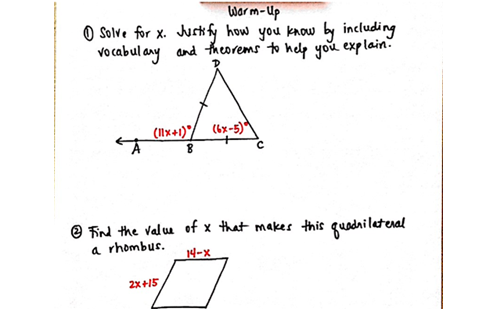 Warm-Up
① Solve for x. Justify how you know by including
vocabulary and theorems to help you explain.
D
(11x+1)° (6x-5)°
A B C
② Find the value of x that makes this quadrilateral
a rhombus.
14-x
2x+15